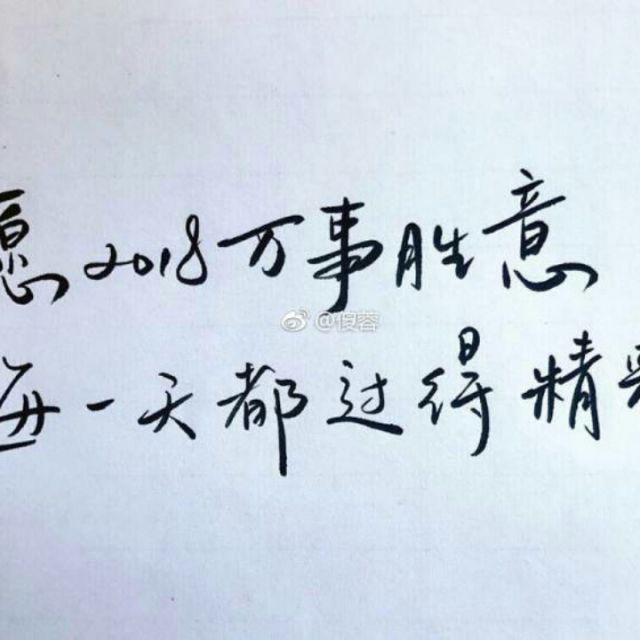 愿2018万事胜意
@傻蓉
每一天都过得精彩